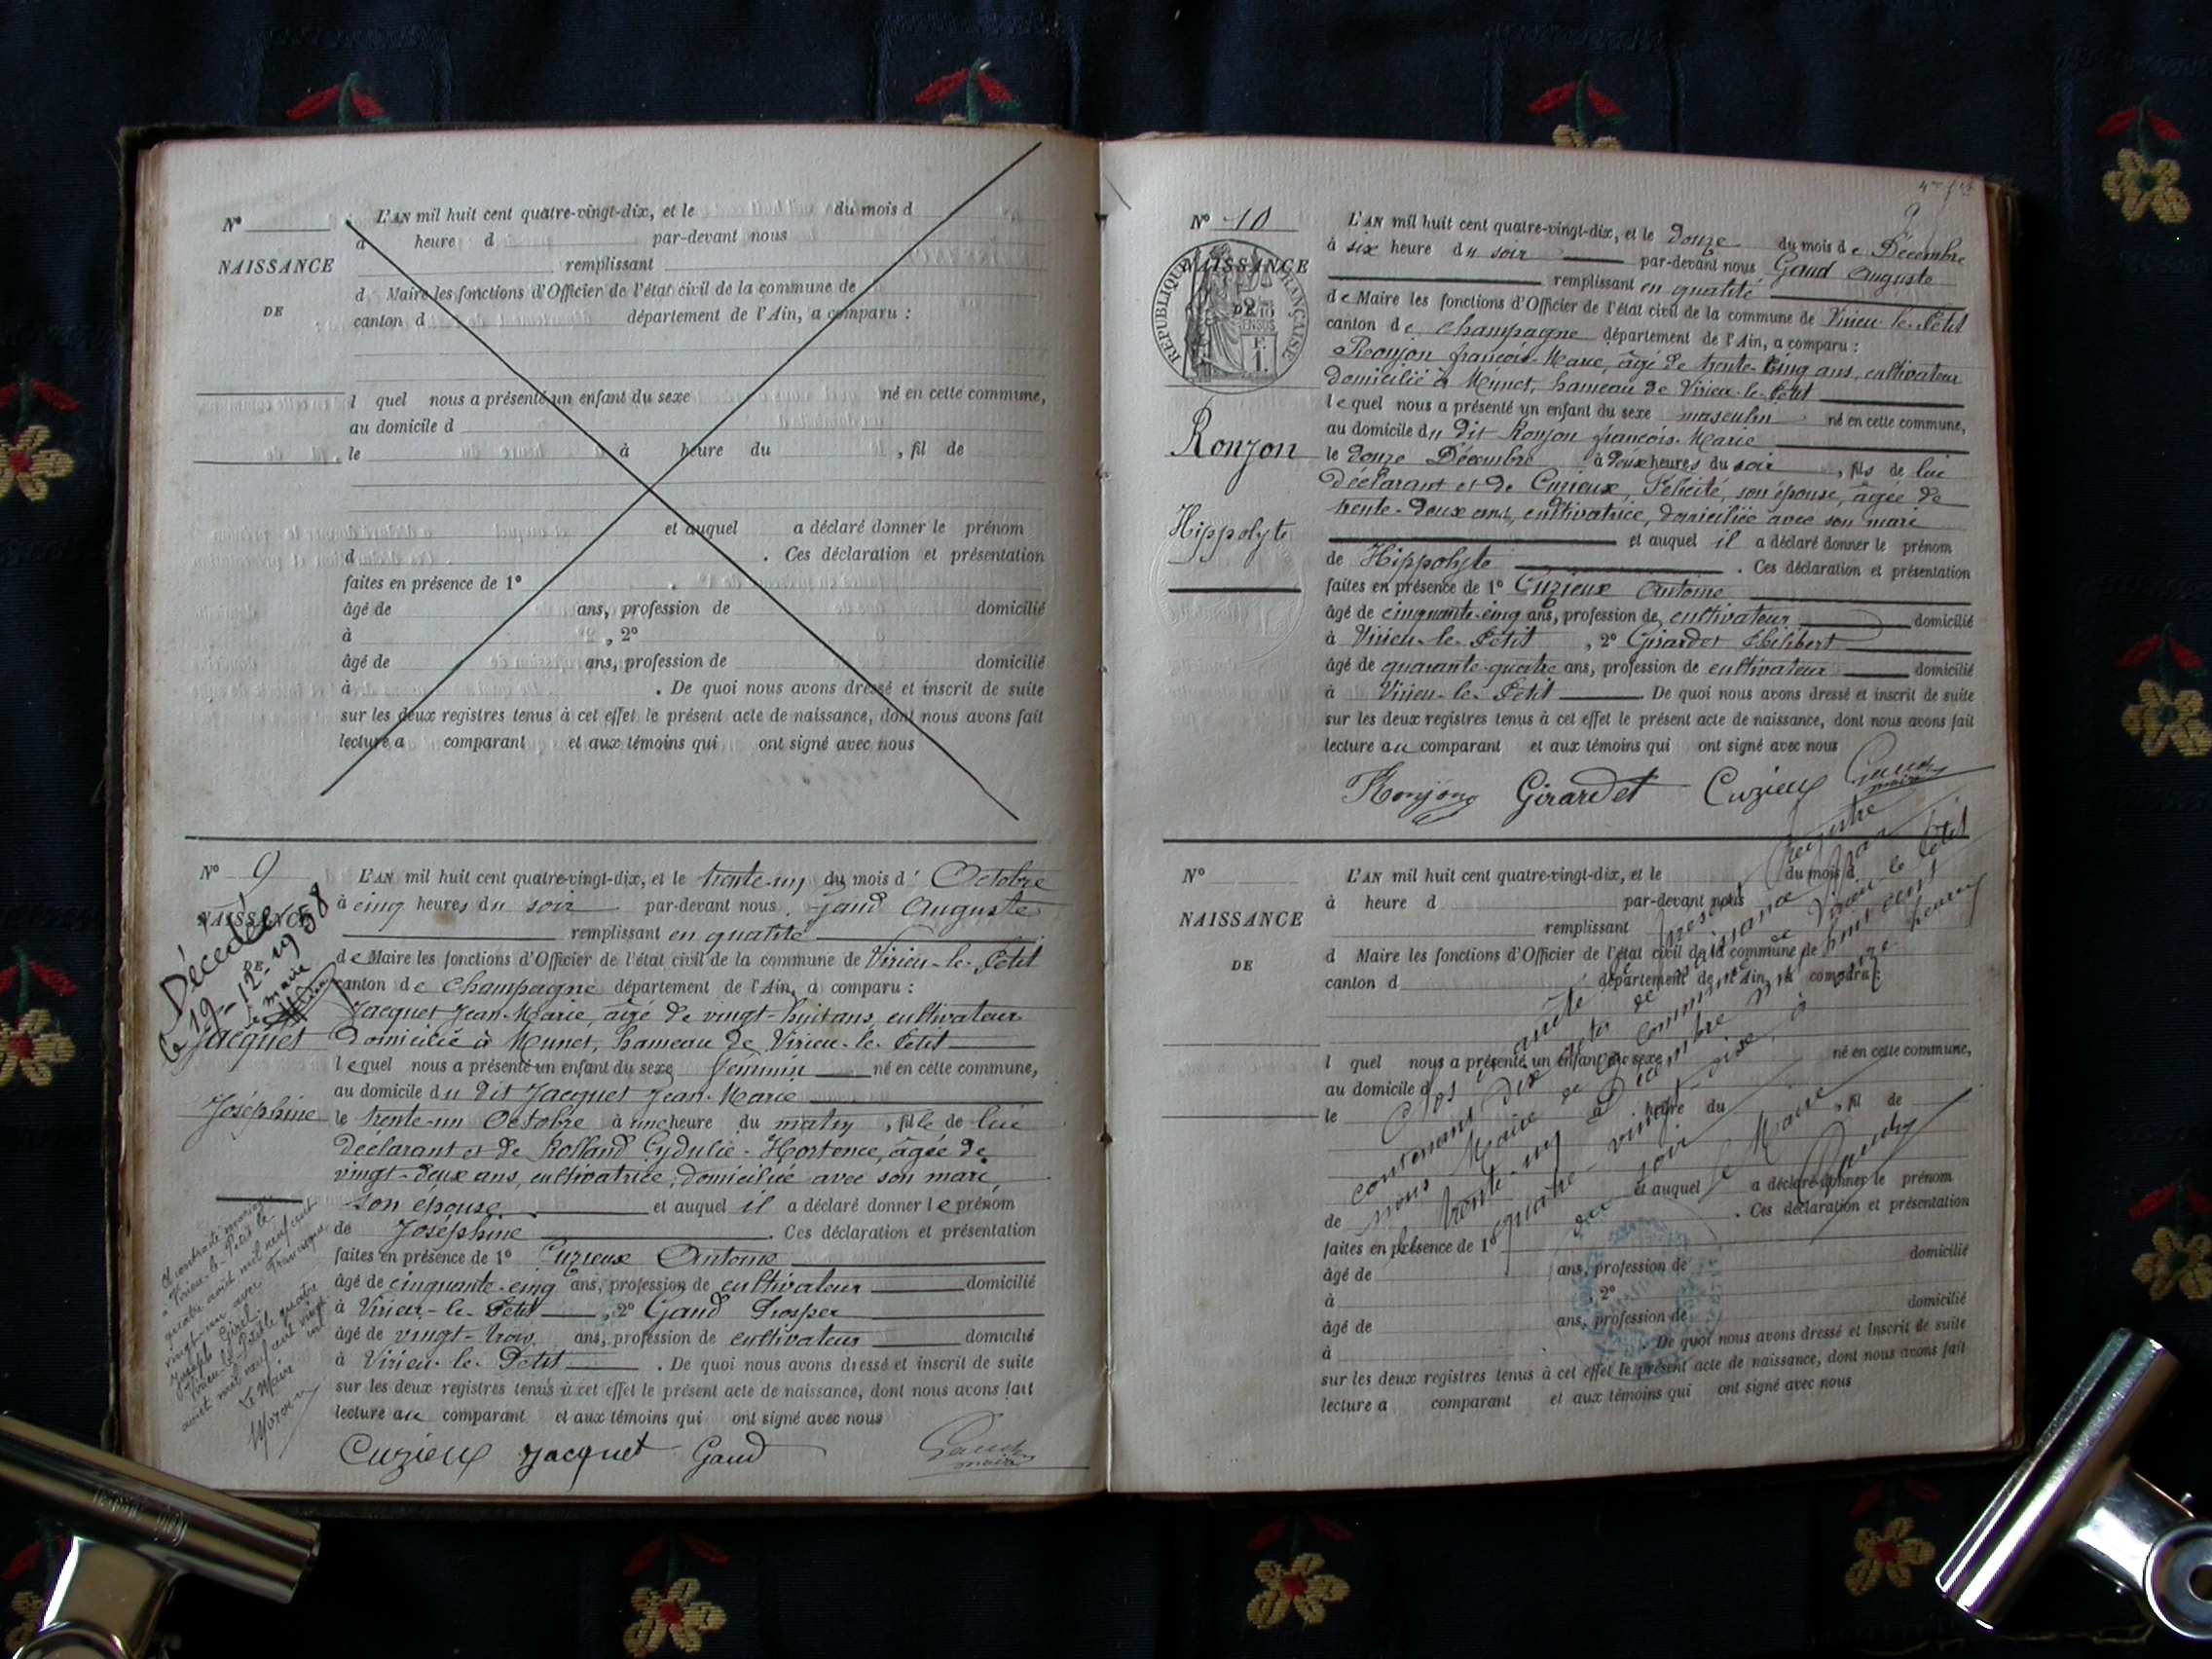 N°
NAISSANCE
DE
L'AN mil huit cent quatre-vingt-dix, et le du mois d
à heure d par-devant nous
remplissant
d Maire les fonctions d'Officier de l'état civil de la commune de
canton d département de l'Ain, a comparu :
l quel nous a présenté un enfant du sexe né en cette commune,
au domicile d
le à heure du , fil de
et auquel a déclaré donner le prénom
d . Ces déclaration et présentation
faites en présence de 1°
âgé de ans, profession de domicilié
à , 2°
âgé de ans, profession de domicilié
à . De quoi nous avons dressé et inscrit de suite
sur les deux registres tenus à cet effet le présent acte de naissance, dont nous avons fait
lecture a comparant et aux témoins qui ont signé avec nous
N° 9
NAISSANCE
Décédée
le 19-12-1958
le maire
Jacquet
Joséphine
L'AN mil huit cent quatre-vingt-dix, et le trente-un du mois d' Octobre
à cinq heures du soir par-devant nous Gaud Auguste
remplissant en qualité
de Maire les fonctions d'Officier de l'état civil de la commune de Virieu-le-Petit
canton de Champagne département de l'Ain, a comparu :
Jacquet Jean-Marie, âgé de vingt-huit ans, cultivateur
domicilié à Munet, hameau de Virieu-le-Petit
lequel nous a présenté un enfant du sexe féminin né en cette commune,
au domicile du dit Jacquet Jean-Marie
le trente-un Octobre à une heure du matin, fille de lui
déclarant et de Rolland Cydulie-Hortence, âgée de
vingt-deux ans, cultivatrice, domiciliée avec son mari,
son épouse et auquel il a déclaré donner le prénom
de Joséphine . Ces déclaration et présentation
faites en présence de 1° Cuzieux Antoine
âgé de cinquante-cinq ans, profession de cultivateur domicilié
à Virieu-le-Petit, 2° Gaud Prosper
âgé de vingt-trois ans, profession de cultivateur domicilié
à Virieu-le-Petit . De quoi nous avons dressé et inscrit de suite
sur les deux registres tenus à cet effet le présent acte de naissance, dont nous avons fait
lecture au comparant et aux témoins qui ont signé avec nous
A contracté mariage
à Virieu-le-Petit le
quatre août mil neuf cent
vingt-un avec
Joseph
Virieu-le-Petit le quatre
août mil neuf cent vingt-
Le Maire
Cuzieux Jacquet Gaud Gaud
maire
9
N° 10
NAISSANCE
RÉPUBLIQUE FRANÇAISE
Ronjon
Hippolyte
L'AN mil huit cent quatre-vingt-dix, et le douze du mois de Décembre
à six heure du soir par-devant nous Gaud Auguste
remplissant en qualité
de Maire les fonctions d'Officier de l'état civil de la commune de Virieu-le-Petit
canton de Champagne département de l'Ain, a comparu :
Ronjon françois-Marie, âgé de trente-cinq ans, cultivateur
domicilié à Munet, hameau de Virieu-le-Petit
lequel nous a présenté un enfant du sexe masculin né en cette commune,
au domicile du dit Ronjon françois-Marie
le douze Décembre à deux heures du soir, fils de lui
déclarant et de Cuzieux, Félicité, son épouse, âgée de
trente-deux ans, cultivatrice, domiciliée avec son mari
et auquel il a déclaré donner le prénom
de Hippolyte . Ces déclaration et présentation
faites en présence de 1° Cuzieux Antoine
âgé de cinquante-cinq ans, profession de cultivateur domicilié
à Virieu-le-Petit, 2° Girardet Philibert
âgé de quarante-quatre ans, profession de cultivateur domicilié
à Virieu-le-Petit . De quoi nous avons dressé et inscrit de suite
sur les deux registres tenus à cet effet le présent acte de naissance, dont nous avons fait
lecture au comparant et aux témoins qui ont signé avec nous
Ronjon Girardet Cuzieux Gaud
maire
N°
NAISSANCE
DE
L'AN mil huit cent quatre-vingt-dix, et le du mois d
à heure d par-devant nous
remplissant
d Maire les fonctions d'Officier de l'état civil de la commune de
canton d département de l'Ain, a comparu :
l quel nous a présenté un enfant du sexe né en cette commune,
au domicile d
le à heure du , fil de
et auquel a déclaré donner le prénom
de . Ces déclaration et présentation
faites en présence de 1°
âgé de domicilié
ans, profession de
à , 2°
âgé de ans, profession de domicilié
à . De quoi nous avons dressé et inscrit de suite
sur les deux registres tenus à cet effet le présent acte de naissance, dont nous avons fait
lecture a comparant et aux témoins qui ont signé avec nous
Clos et arrêté le présent registre
contenant dix actes de naissance par
nous Maire de la commune de Virieu-le-Petit
le trente-un Décembre mil huit cent
quatre-vingt-dix, à heures
du soir
le Maire
Gaud